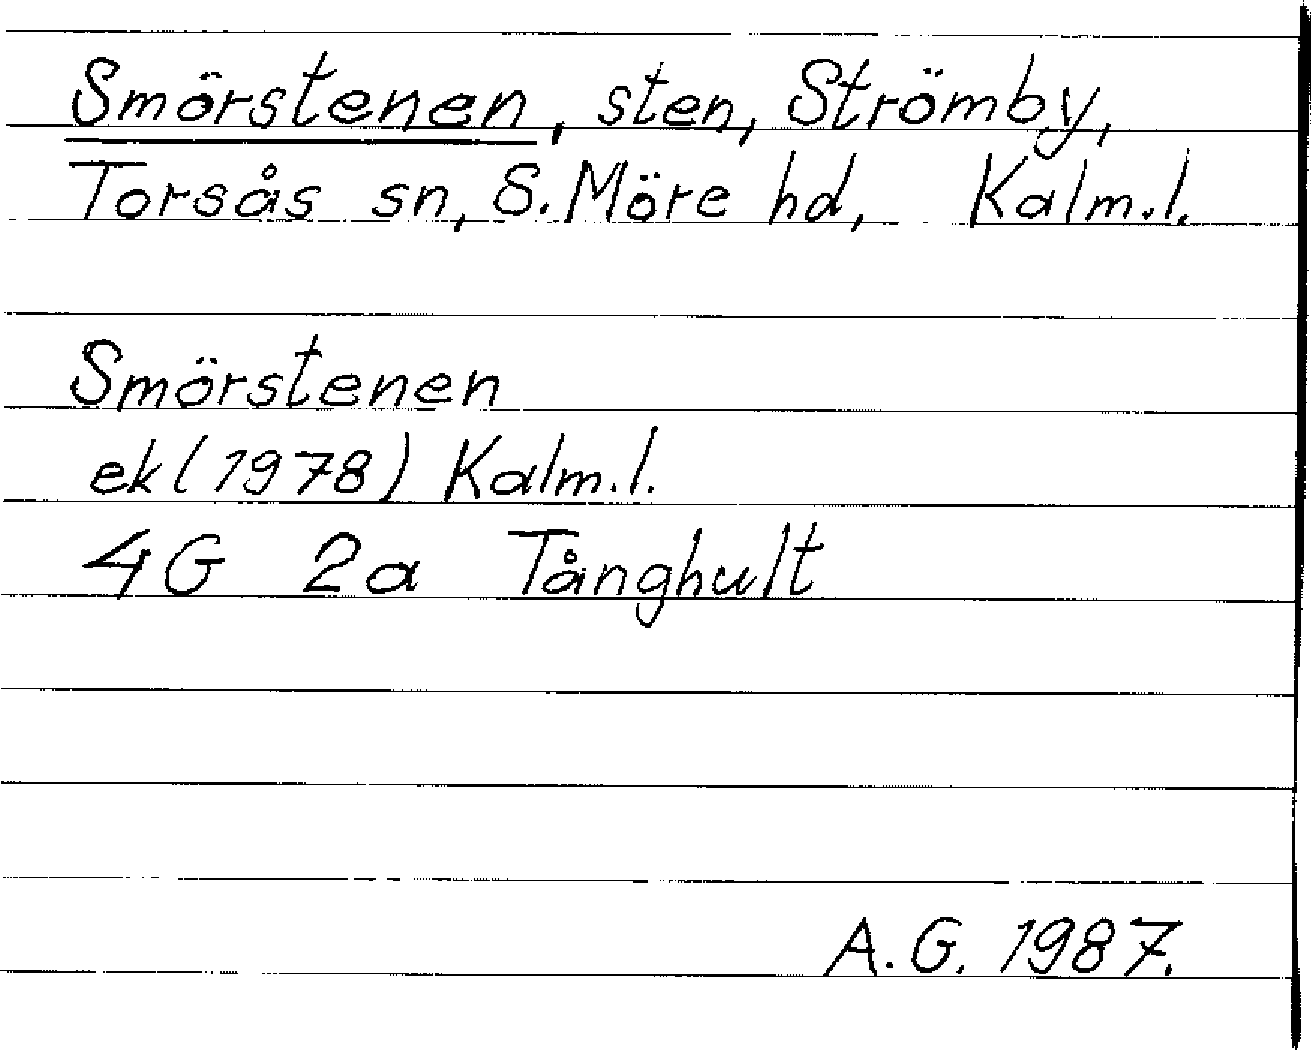 Smörstenen, sten, Strömby,
Torsås sn, S. Möre hd, Kalm.l.
Smörstenen
ek (1978) Kalm.l.
4G 2a Tånghult
A.G. 1987.